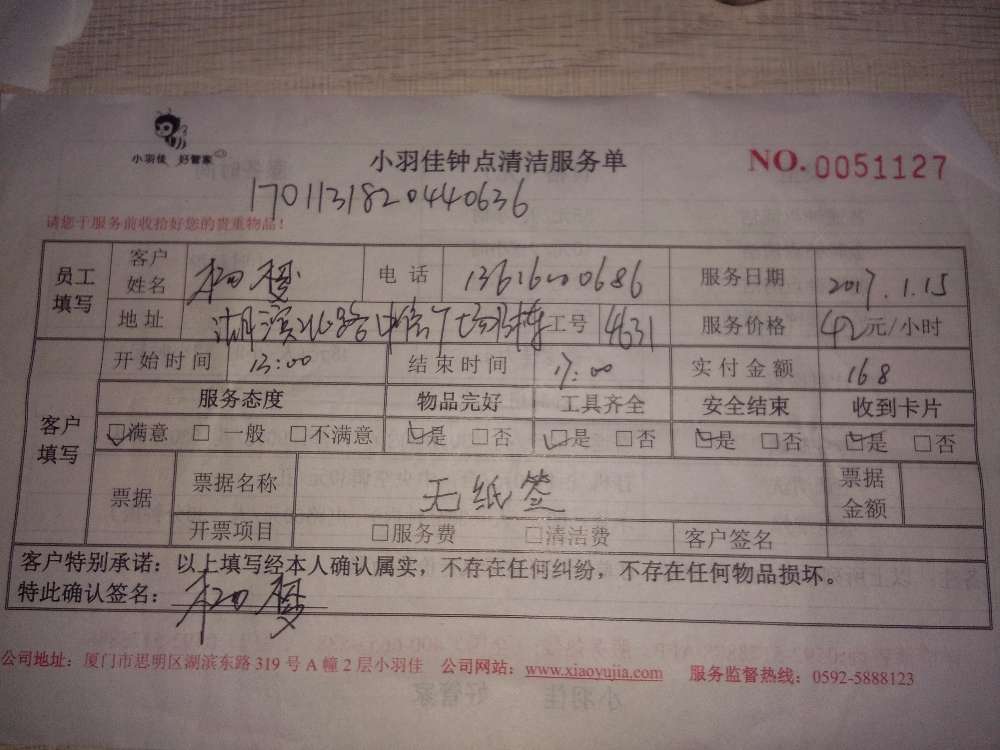 小羽佳 好管家
小羽佳钟点清洁服务单
NO.0051127
1701131820440636
请您于服务前收拾好您的贵重物品！
员工填写 客户姓名 电话 服务日期 2017.1.15
地址 工号 4631 服务价格 42元/小时
客户填写 开始时间 13:00 结束时间 17:00 实付金额 168
服务态度 物品完好 工具齐全 安全结束 收到卡片
☑满意 □一般 □不满意 ☑是 □否 ☑是 □否 ☑是 □否 ☑是 □否
票据 票据名称 无纸签 票据金额
开票项目 □服务费 □清洁费 客户签名
客户特别承诺：以上填写经本人确认属实，不存在任何纠纷，不存在任何物品损坏。
特此确认签名：
公司地址：厦门市思明区湖滨东路319号A幢2层小羽佳 公司网站：www.xiaoyujia.com 服务监督热线：0592-5888123